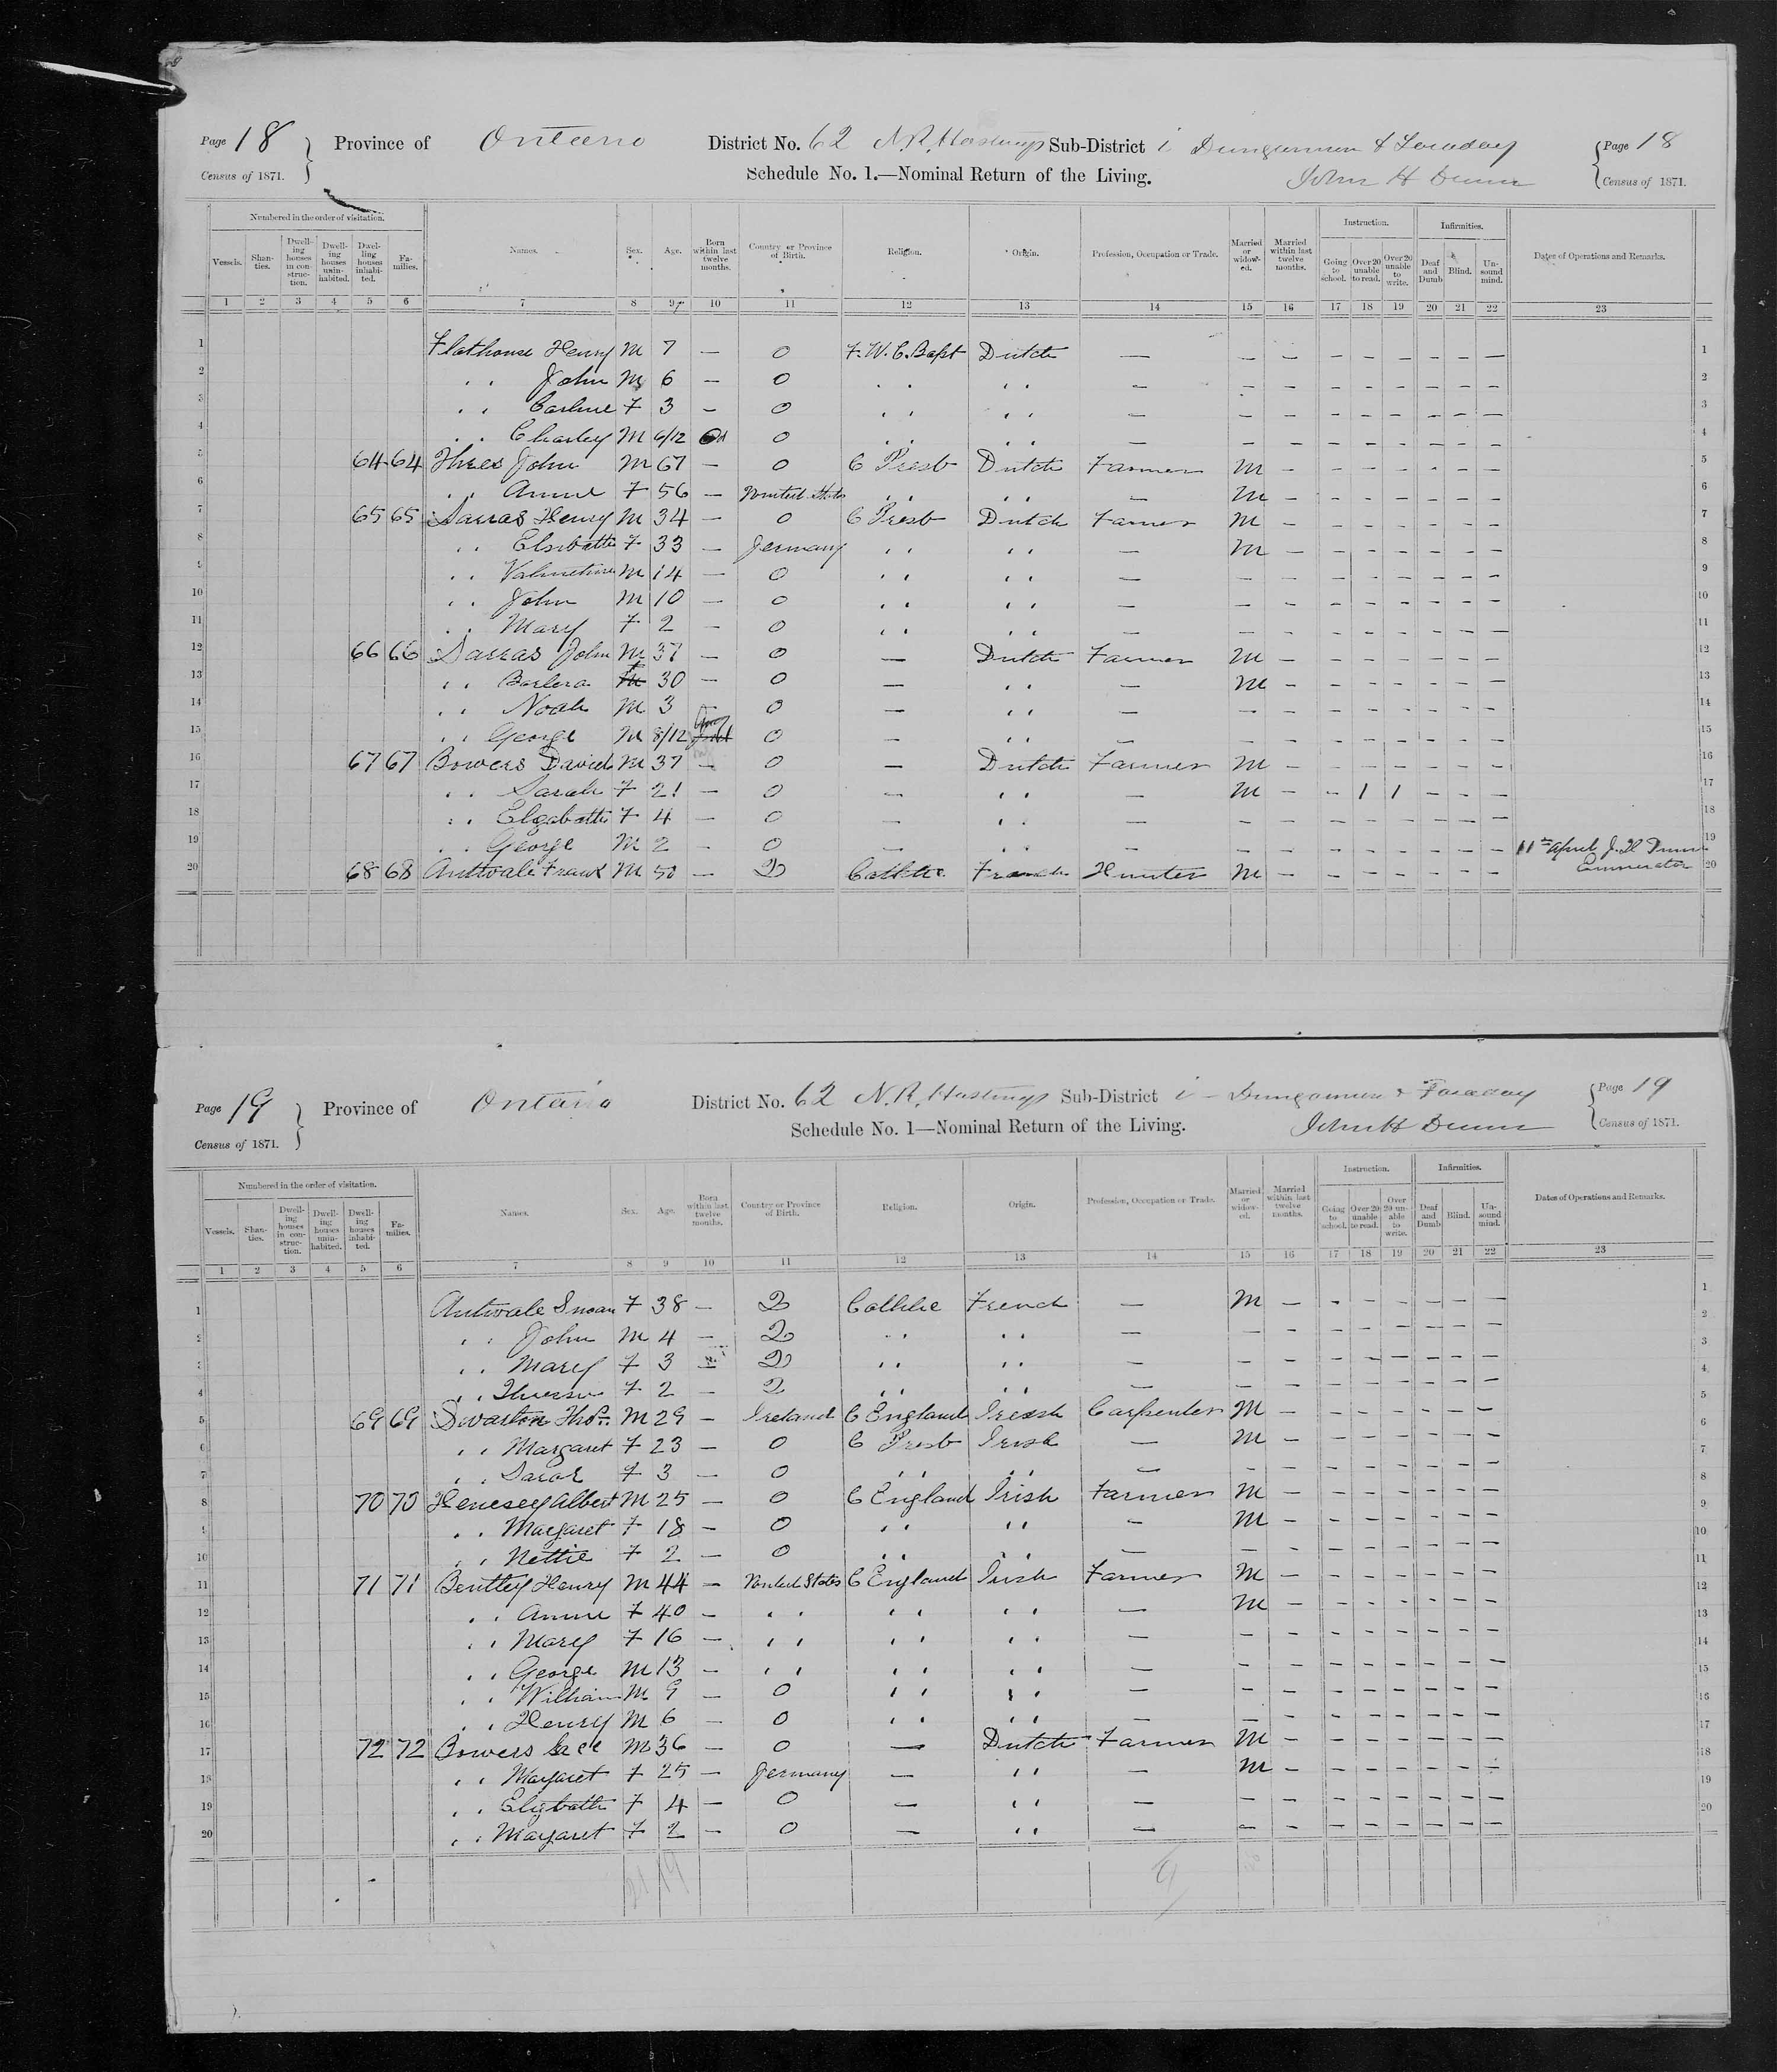 Page 18 Province of Ontario District No. 62 N.R. Hastings Sub-District i Dungannon & Faraday Page 18
Census of 1871. Schedule No. 1.—Nominal Return of the Living. John H Dunn Census of 1871.
Numbered in the order of visitation. Instruction. Infirmities.
Vessels. Shan-ties. Dwell-ing houses in con-struc-tion. Dwell-ing houses unin-habited. Dwel-ling houses inhabi-ted. Fa-milies. Names. Sex. Age. Born within last twelve months. Country or Province of Birth. Religion. Origin. Profession, Occupation or Trade. Married or widow-ed. Married within last twelve months. Going to school. Over 20 unable to read. Over 20 unable to write. Deaf and Dumb Blind. Un-sound mind. Dates of Operations and Remarks.
1 2 3 4 5 6 7 8 9 10 11 12 13 14 15 16 17 18 19 20 21 22 23
1 Flathouse Henry M 7 — O F.W.C. Bapt Dutch — — — — — — — — — 1
2 " John M 6 — O " " — — — — — — — — — 2
3 " Carline F 3 — O " " — — — — — — — — — 3
4 " Charley M 6/12 O " " — — — — — — — — — 4
5 64 64 John M 67 — O C Presb Dutch Farmer M — — — — — — — 5
6 " Annie F 56 — United States " " — M — — — — — — — 6
7 65 65 Sarras Henry M 34 — O C Presb Dutch Farmer M — — — — — — — 7
8 " Elsibath F 33 — Germany " " — M — — — — — — — 8
9 " Valmetine M 14 — O " " — — — — — — — — — 9
10 " John M 10 — O " " — — — — — — — — — 10
11 " Mary F 2 — O " " — — — — — — — — — 11
12 66 66 Sarras John M 37 — O — Dutch Farmer M — — — — — — — 12
13 " Barbera F 30 — O — " — M — — — — — — — 13
14 " Noah M 3 — O — " — — — — — — — — — 14
15 " George M 8/12 O — " — — — — — — — — — 15
16 67 67 Bowers David M 37 — O — Dutch Farmer M — — — — — — — 16
17 " Sarah F 21 — O — " — M — — 1 1 — — — 17
18 " Elgabath F 4 — O — " — — — — — — — — — 18
19 " George M 2 — O — " — — — — — — — — — 11th April J. H Dunn 19
20 68 68 Antwale Frank M 50 — Q Catholic French Hunter M — — — — — — — Enumerator 20
Page 19 Province of Ontario District No. 62 N.R. Hastings Sub-District i – Dungannon & Faraday Page 19
Census of 1871. Schedule No. 1—Nominal Return of the Living. John H Dunn Census of 1871.
Numbered in the order of visitation. Instruction. Infirmities.
Vessels. Shan-ties. Dwell-ing houses in con-struc-tion. Dwell-ing houses unin-habited. Dwell-ing houses inhabi-ted. Fa-milies. Names. Sex. Age. Born within last twelve months. Country or Province of Birth. Religion. Origin. Profession, Occupation or Trade. Married or widow-ed. Married within last twelve months. Going to school. Over 20 unable to read. Over 20 un-able to write. Deaf and Dumb Blind. Un-sound mind. Dates of Operations and Remarks.
1 2 3 4 5 6 7 8 9 10 11 12 13 14 15 16 17 18 19 20 21 22 23
1 Antwale Susan F 38 — Q Catholic French — M — — — — — — — 1
2 " John M 4 — Q " " — — — — — — — — — 2
3 " Mary F 3 — Q " " — — — — — — — — — 3
4 " F 2 — Q " " — — — — — — — — — 4
5 69 69 Swarton Thos. M 29 — Ireland C England Irish Carpenter M — — — — — — — 5
6 " Margaret F 23 — O C Presb Irish — M — — — — — — — 6
7 " Sarah F 3 — O " " — — — — — — — — — 7
8 70 70 Henesey Albert M 25 — O C England Irish Farmer M — — — — — — — 8
9 " Margaret F 18 — O " " — M — — — — — — — 9
10 " Nettie F 2 — O " " — — — — — — — — — 10
11 71 71 Bentley Henry M 44 — United States C England Irish Farmer M — — — — — — — 11
12 " Annie F 40 — " " " — M — — — — — — — 12
13 " Mary F 16 — " " " — — — — — — — — — 13
14 " George M 13 — " " " — — — — — — — — — 14
15 " William M 9 — O " " — — — — — — — — — 15
16 " Henry M 6 — O " " — — — — — — — — — 16
17 72 72 Bowers M 36 — O — Dutch Farmer M — — — — — — — 17
18 " Margaret F 25 — Germany — " — M — — — — — — — 18
19 " Elizbath F 4 — O — " — — — — — — — — — 19
20 " Margaret F 2 — O — " — — — — — — — — — 20